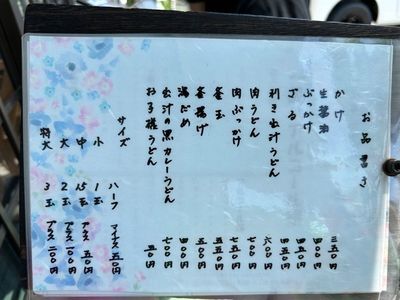 お品書き
かけ 三五〇円
生醤油 四〇〇円
ぶっかけ 四五〇円
ざる 四五〇円
利き出汁うどん 六〇〇円
肉うどん 七五〇円
肉ぶっかけ 七五〇円
釜玉 五五〇円
釜揚げ 五〇〇円
湯だめ 四〇〇円
出汁の黒カレーうどん 七〇〇円
お子様うどん 五〇円
サイズ
ハーフ マイナス五〇円
小 1玉
中 1.5玉 プラス 五〇円
大 2玉 プラス 一〇〇円
特大 3玉 プラス 二〇〇円